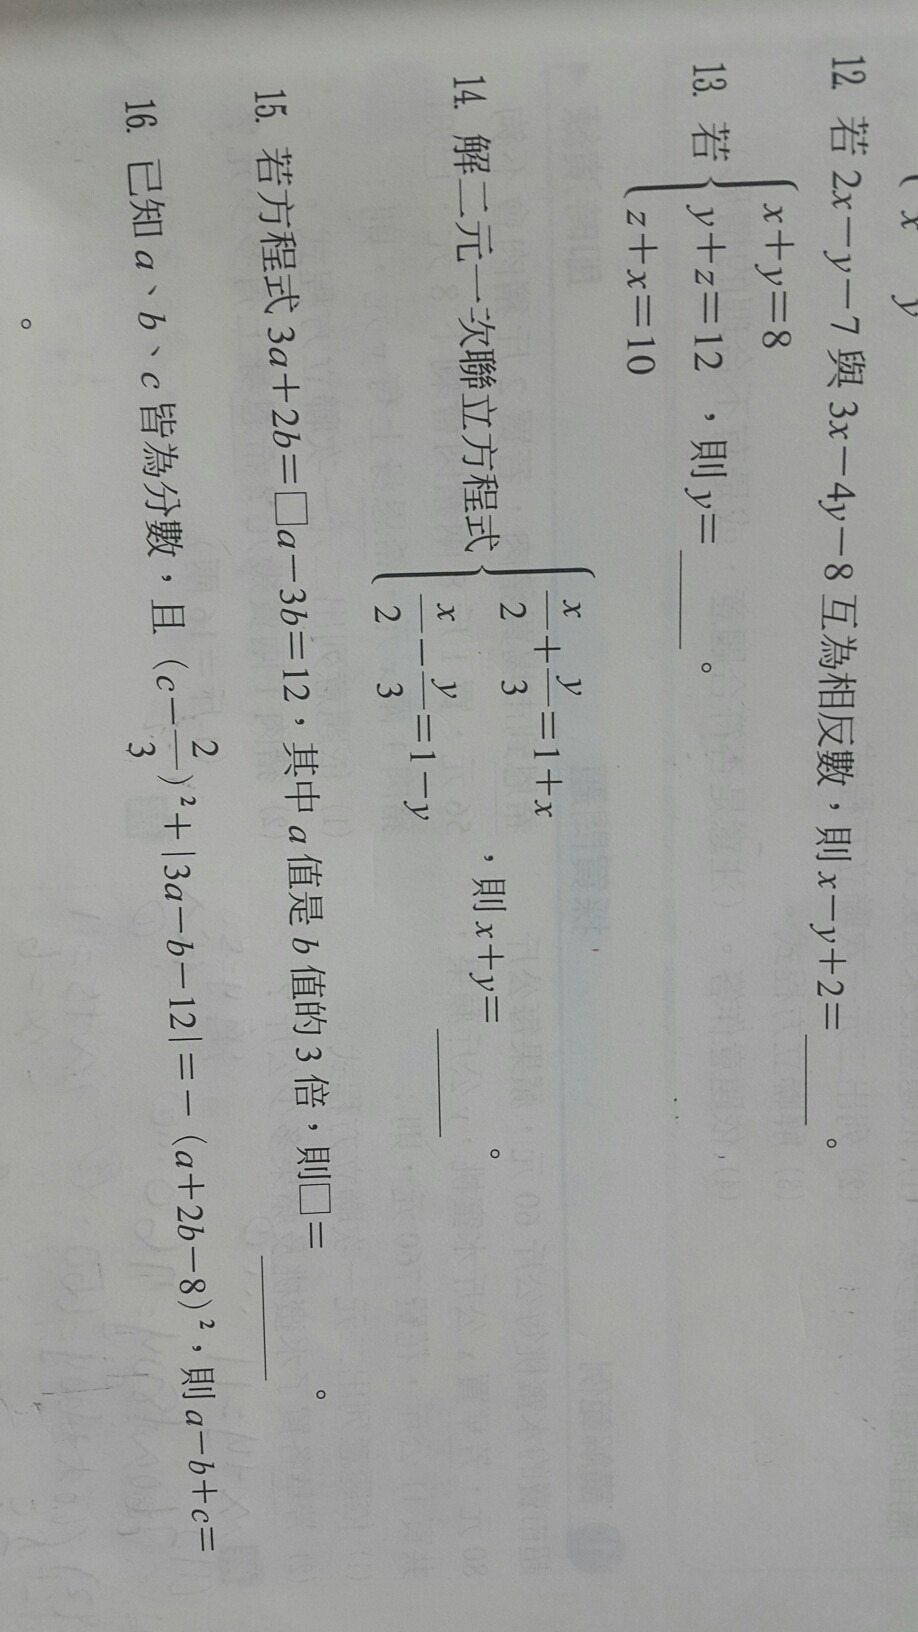 x y
12. 若 2x－y－7 與 3x－4y－8 互為相反數，則 x－y＋2＝＿＿＿。
13. 若 { x＋y＝8
y＋z＝12 ，則 y＝＿＿＿。
z＋x＝10
14. 解二元一次聯立方程式 { x/2＋y/3＝1＋x
x/2－y/3＝1－y ，則 x＋y＝＿＿＿。
15. 若方程式 3a＋2b＝□a－3b＝12，其中 a 值是 b 值的 3 倍，則□＝＿＿＿。
16. 已知 a、b、c 皆為分數，且（c－2/3）²＋|3a－b－12|＝－（a＋2b－8）²，則 a－b＋c＝
。